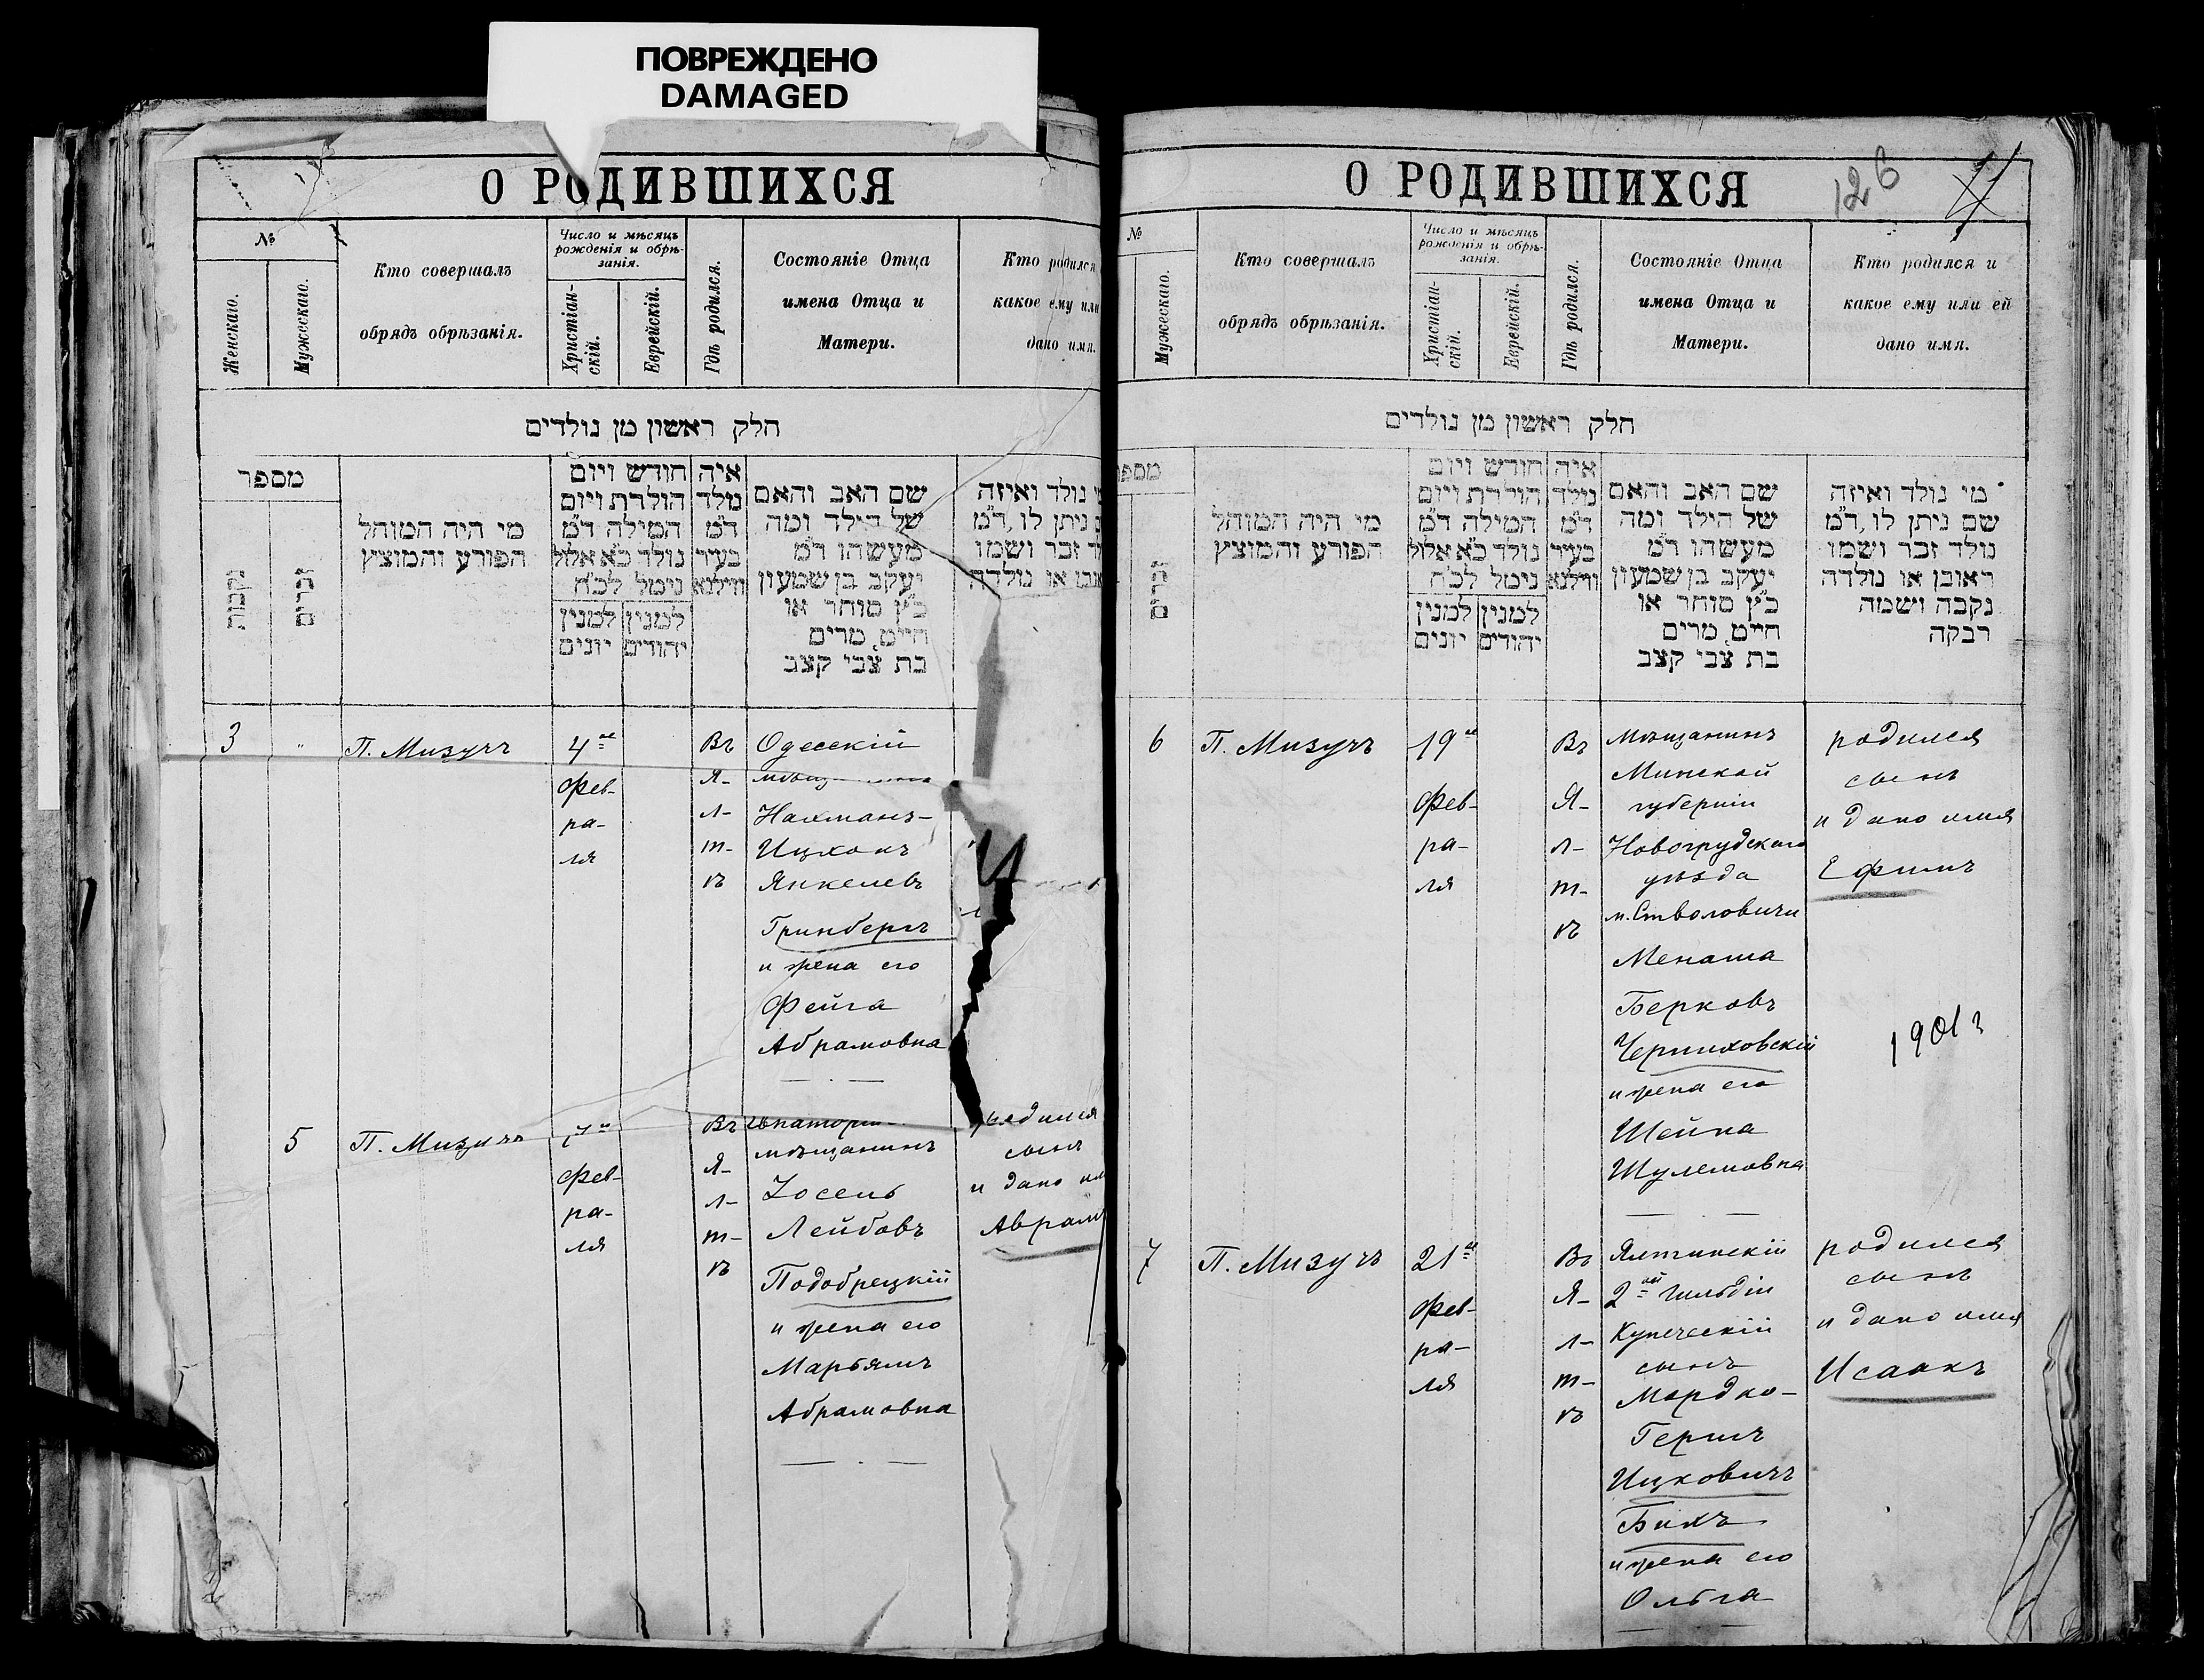 ПОВРЕЖДЕНО
DAMAGED
О РОДИВШИХСЯ
№
Женскаго.
Мужескаго.
Кто совершалъ
обрядъ обрѣзанія.
Число и мѣсяцъ
рожденія и обрѣ-
занія.
Христіан-
скій.
Еврейскій.
Гдѣ родился.
Состояніе Отца
имена Отца и
Матери.
Кто родился
какое ему или
дано имя.
חלק ראשון מן נולדים
מספר
נקבות
זכרים
מי היה המוהל
הפורע והמוצץ
חודש ויום
הולדת ויום
המילה ד״מ
נולד כ״א אלול
נימל לכ״ח
למנין
יהודים
למנין
יונים
איה
נולד
ד״מ
בעיר
ווילנא
שם האב והאם
של הילד ומה
מעשהו ד״מ
יעקב בן שמעון
כ״ץ סוחר או
חייט, מרים
בת צבי קצב
נולד ואיזה
ניתן לו, ד״מ
זכר ושמו
או נולדה
3
"
П. Мизучъ
4го
Фев-
ра-
ля
Въ
Я-
л-
т-
ѣ
Одесскій
Нахманъ-
Ицхокъ
Янкелевъ
Гринбергъ
и жена его
Фейга
Абрамовна
5
П. Мизучъ
7го
Фев-
ра-
ля
Въ
Я-
л-
т-
ѣ
мѣщанинъ
Іосель
Лейбовъ
Подобрецкій
и жена его
Марьямъ
Абрамовна
родился
сынъ
и дано им
Аврам
О РОДИВШИХСЯ
126
№
Мужескаго.
Кто совершалъ
обрядъ обрѣзанія.
Число и мѣсяцъ
рожденія и обрѣ-
занія.
Христіан-
скій.
Еврейскій.
Гдѣ родился.
Состояніе Отца
имена Отца и
Матери.
Кто родился и
какое ему или ей
дано имя.
חלק ראשון מן נולדים
מספר
זכרים
מי היה המוהל
הפורע והמוצץ
חודש ויום
הולדת ויום
המילה ד״מ
נולד כ״א אלול
נימל לכ״ח
למנין
יהודים
למנין
יונים
איה
נולד
ד״מ
בעיר
ווילנא
שם האב והאם
של הילד ומה
מעשהו ד״מ
יעקב בן שמעון
כ״ץ סוחר או
חייט, מרים
בת צבי קצב
מי נולד ואיזה
שם ניתן לו, ד״מ
נולד זכר ושמו
ראובן או נולדה
נקבה ושמה
רבקה
6
П. Мизучъ
19го
Фев-
ра-
ля
Въ
Я-
л-
т-
ѣ
Мѣщанинъ
Минской
губерніи
Новогрудскаго
уѣзда
м. Стволовичи
Менаша
Берковъ
Черниховскій
и жена его
Шейна
Шулемовна
родился
сынъ
и дано имя
Ефимъ
1901 г
7
П. Мизучъ
21го
Фев-
ра-
ля
Въ
Я-
л-
т-
ѣ
Ялтинскій
2ой гильдіи
Купеческій
сынъ
Мордко-
Гершъ
Ицковичъ
Бихъ
и жена его
Ольга
родился
сынъ
и дано имя
Исаакъ